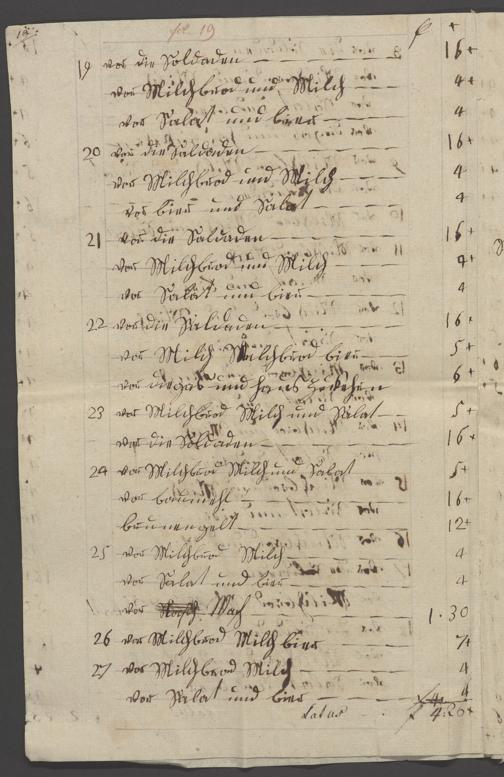 fol. 19
19 vor die Soldaden 16
vor Milchbrod und Milch 4
vor Salat und bier 4
20 vor die Saldaden 16
vor Milchbrod und Milch 4
vor bier und Salat 4
21 vor die Saldaden 16
vor Milchbrod und Milch 4
vor Salat und bier 4
22 vor die Saldaden 16
vor Milch Milchbrod bier 5
vor die und 6
23 vor Milchbrod Milch und Salat 5
vor die Soldaden 16
24 vor Milchbrod Milch und Salat 5
vor 16
brunengelt 12
25 vor Milchbrod Milch 4
vor Salat und bier 4
vor 1.30
26 vor Milchbrod Milch bier 7
27 vor Milchbrod Milch 4
vor Salat und bier 4
Latus 4:20